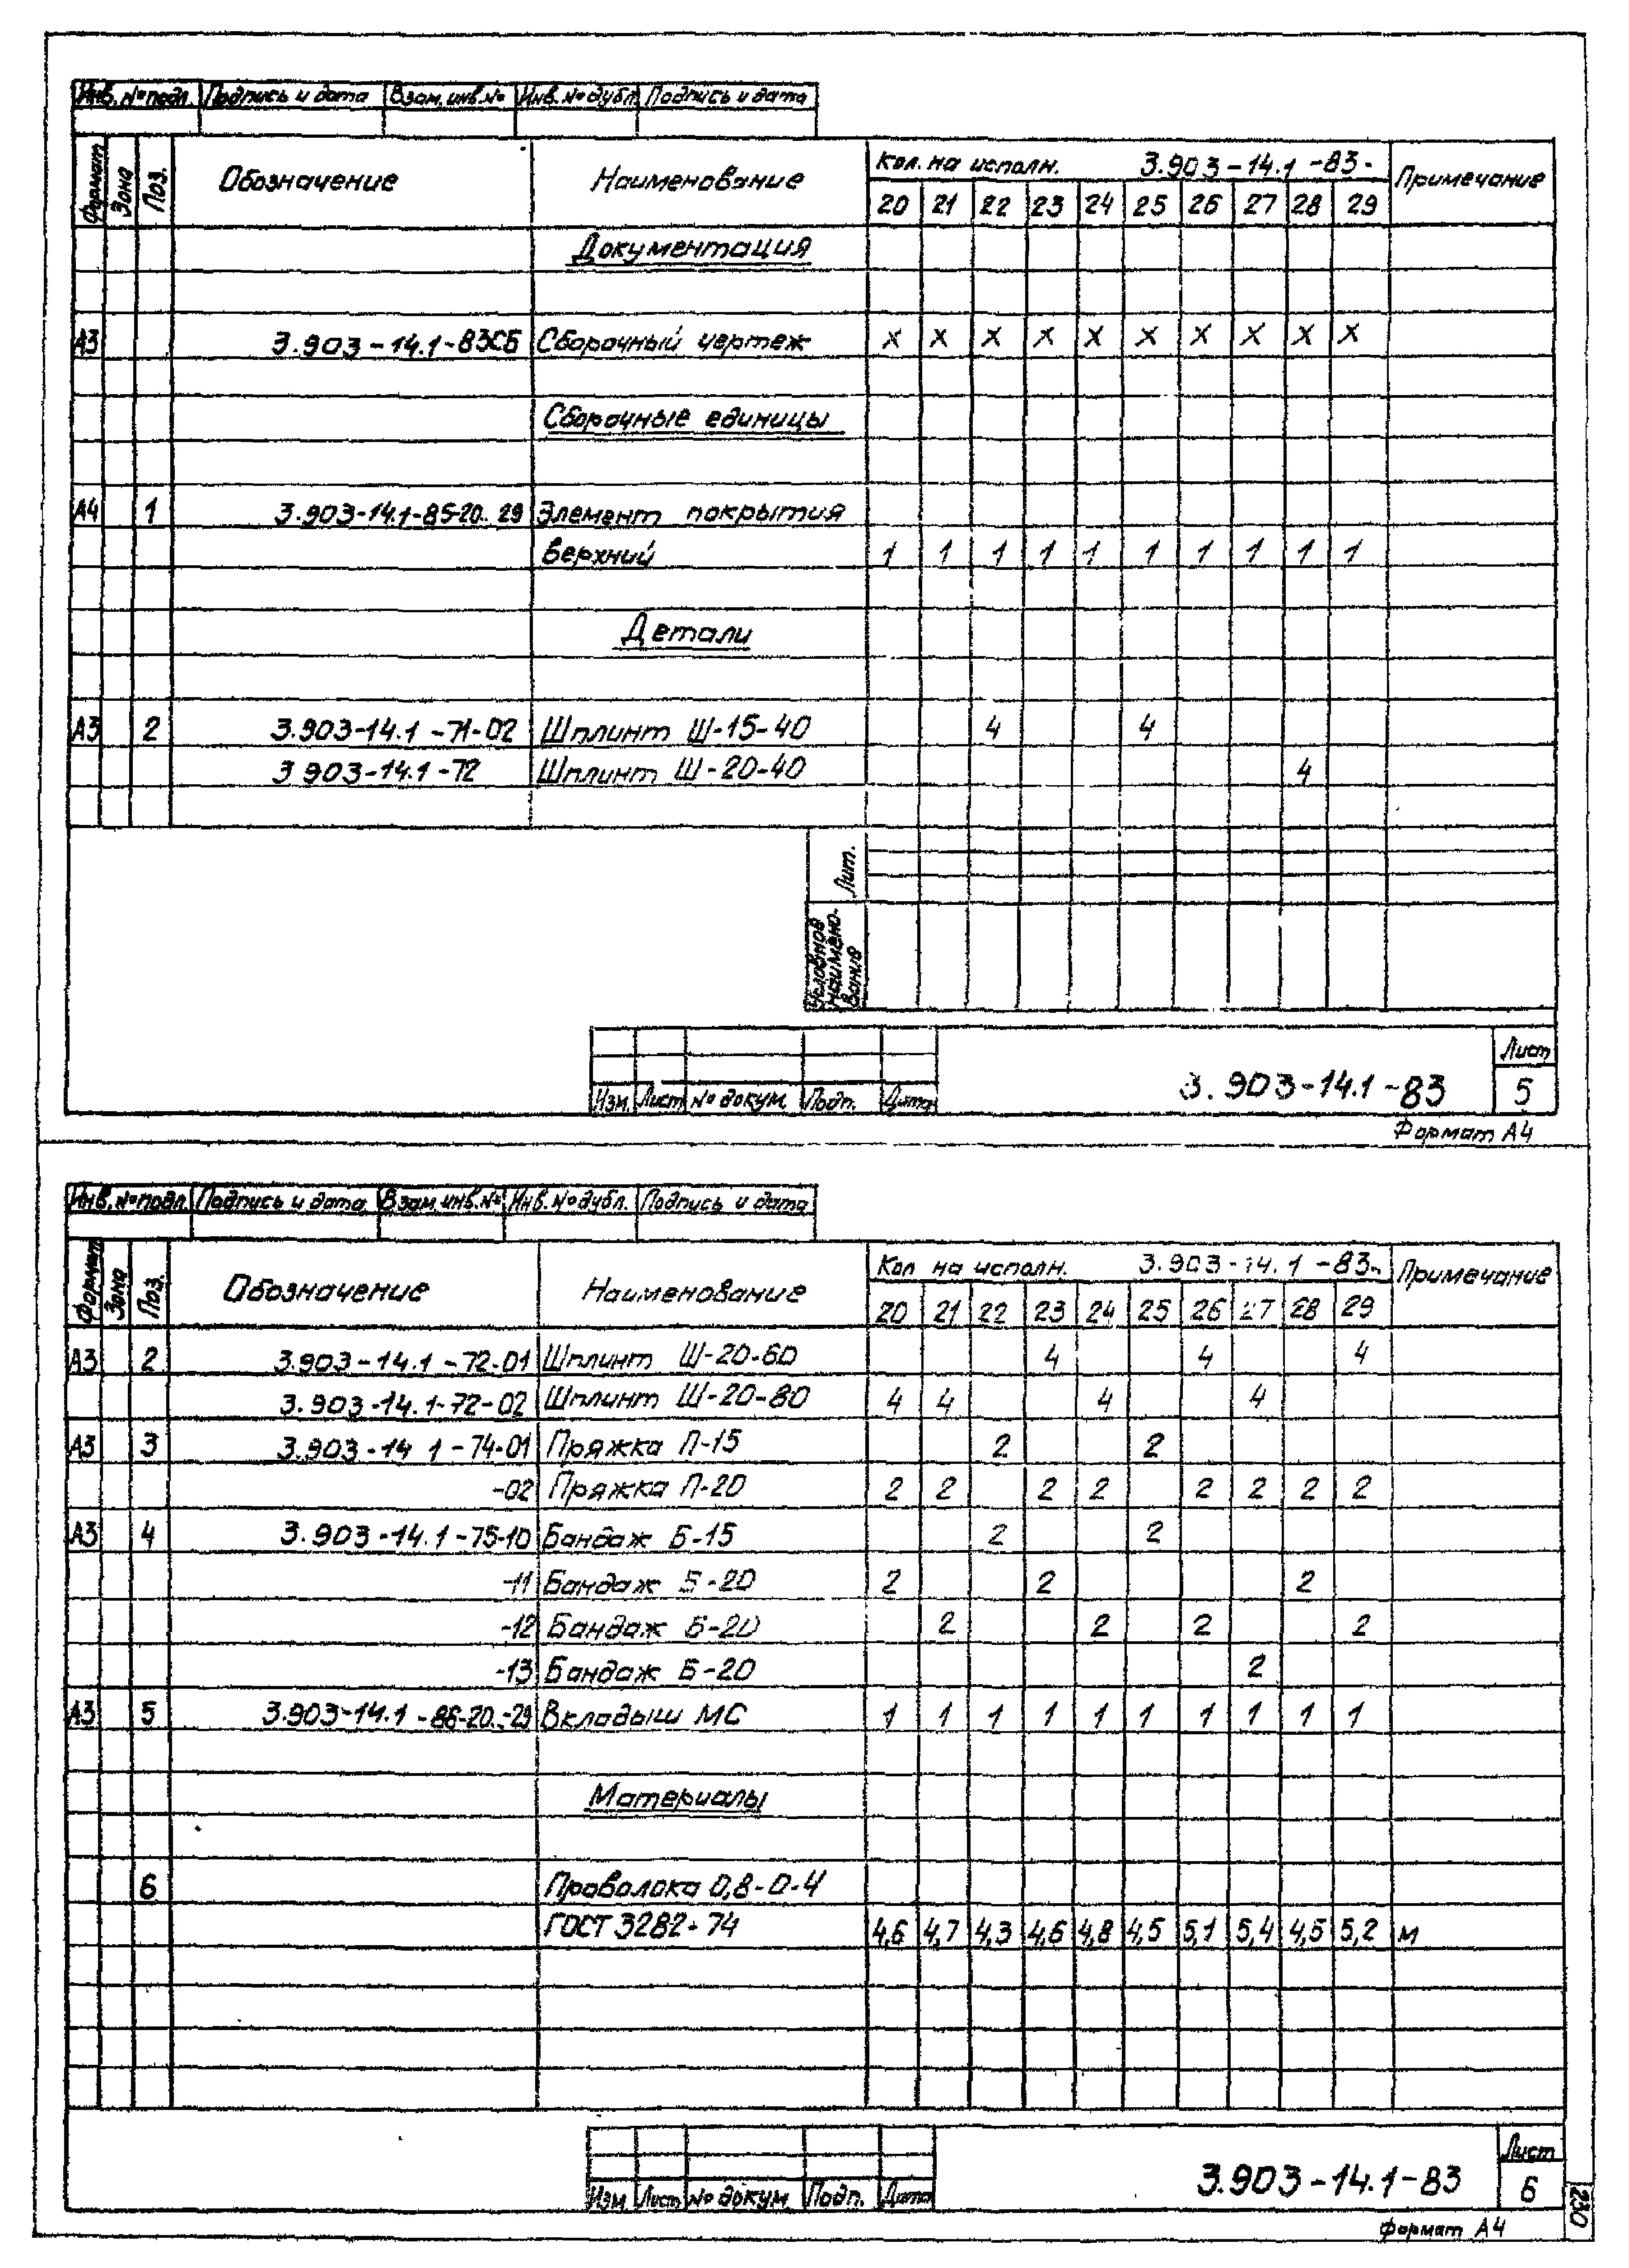 Инв. № подл. Подпись и дата Взам. инв. № Инв. № дубл. Подпись и дата
Формат Зона Поз. Обозначение Наименование Кол. на исполн. 3.903-14.1-83- Примечание
20 21 22 23 24 25 26 27 28 29
Документация
А3 3.903-14.1-83СБ Сборочный чертеж х х х х х х х х х х
Сборочные единицы
А4 1 3.903-14.1-85-20..29 Элемент покрытия
верхний 1 1 1 1 1 1 1 1 1 1
Детали
А3 2 3.903-14.1-71-02 Шплинт Ш-15-40 4 4
3.903-14.1-72 Шплинт Ш-20-40 4
Лит.
Условное наимено-вание
Изм. Лист № докум. Подп. Дата 3.903-14.1-83 Лист 5
Формат А4
Инв. № подл. Подпись и дата Взам. инв. № Инв. № дубл. Подпись и дата
Формат Зона Поз. Обозначение Наименование Кол на исполн. 3.903-14.1-83- Примечание
20 21 22 23 24 25 26 27 28 29
А3 2 3.903-14.1-72-01 Шплинт Ш-20-60 4 4 4
3.903-14.1-72-02 Шплинт Ш-20-80 4 4 4 4
А3 3 3.903-14 1-74-01 Пряжка П-15 2 2
-02 Пряжка П-20 2 2 2 2 2 2 2 2
А3 4 3.903-14.1-75-10 Бандаж Б-15 2 2
-11 Бандаж Б-20 2 2 2
-12 Бандаж Б-20 2 2 2 2
-13 Бандаж Б-20 2
А3 5 3.903-14.1-86-20..-29 Вкладыш МС 1 1 1 1 1 1 1 1 1 1
Материалы
6 Проволока 0,8-0-4
ГОСТ 3282-74 4,6 4,7 4,3 4,6 4,8 4,5 5,1 5,4 4,5 5,2 м
Изм Лист № докум. Подп. Дата 3.903-14.1-83 Лист 6
Формат А4